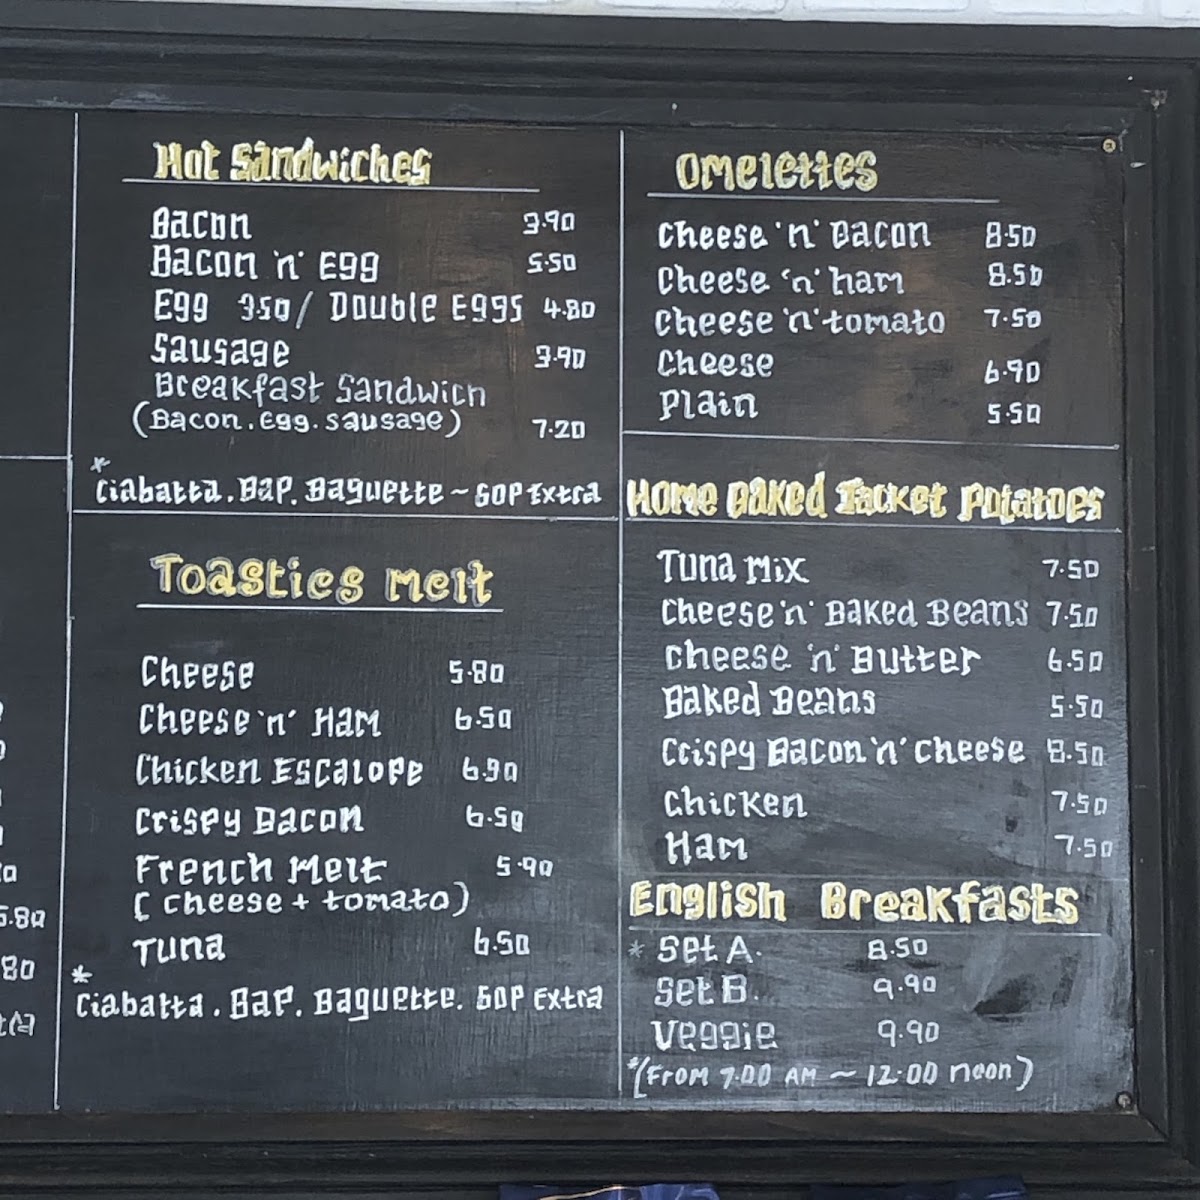 Hot Sandwiches
Bacon 3.90
Bacon 'n' Egg 5.50
Egg 3.50 / Double Eggs 4.80
Sausage 3.90
Breakfast Sandwich
(Bacon. Egg. Sausage) 7.20
* Ciabatta. Bap. Baguette ~ 60P Extra
Toasties Melt
Cheese 5.80
Cheese 'n' Ham 6.50
Chicken Escalope 6.90
Crispy Bacon 6.50
French Melt 5.90
(Cheese + tomato)
Tuna 6.50
* Ciabatta. Bap. Baguette. 60P Extra
Omelettes
Cheese 'n' Bacon 8.50
Cheese 'n' ham 8.50
Cheese 'n' tomato 7.50
Cheese 6.90
Plain 5.50
Home Baked Jacket Potatoes
Tuna Mix 7.50
Cheese 'n' Baked Beans 7.50
Cheese 'n' Butter 6.50
Baked Beans 5.50
Crispy Bacon 'n' Cheese 8.50
Chicken 7.50
Ham 7.50
English Breakfasts
* Set A. 8.50
Set B. 9.90
Veggie 9.90
*(From 7.00 AM ~ 12.00 noon)